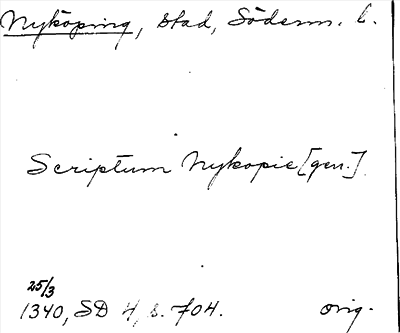 Nyköping, stad, Söderm. l.
Scriptum Nykopie [gen.]
25/3
1340, SD 4, s. 704. orig.